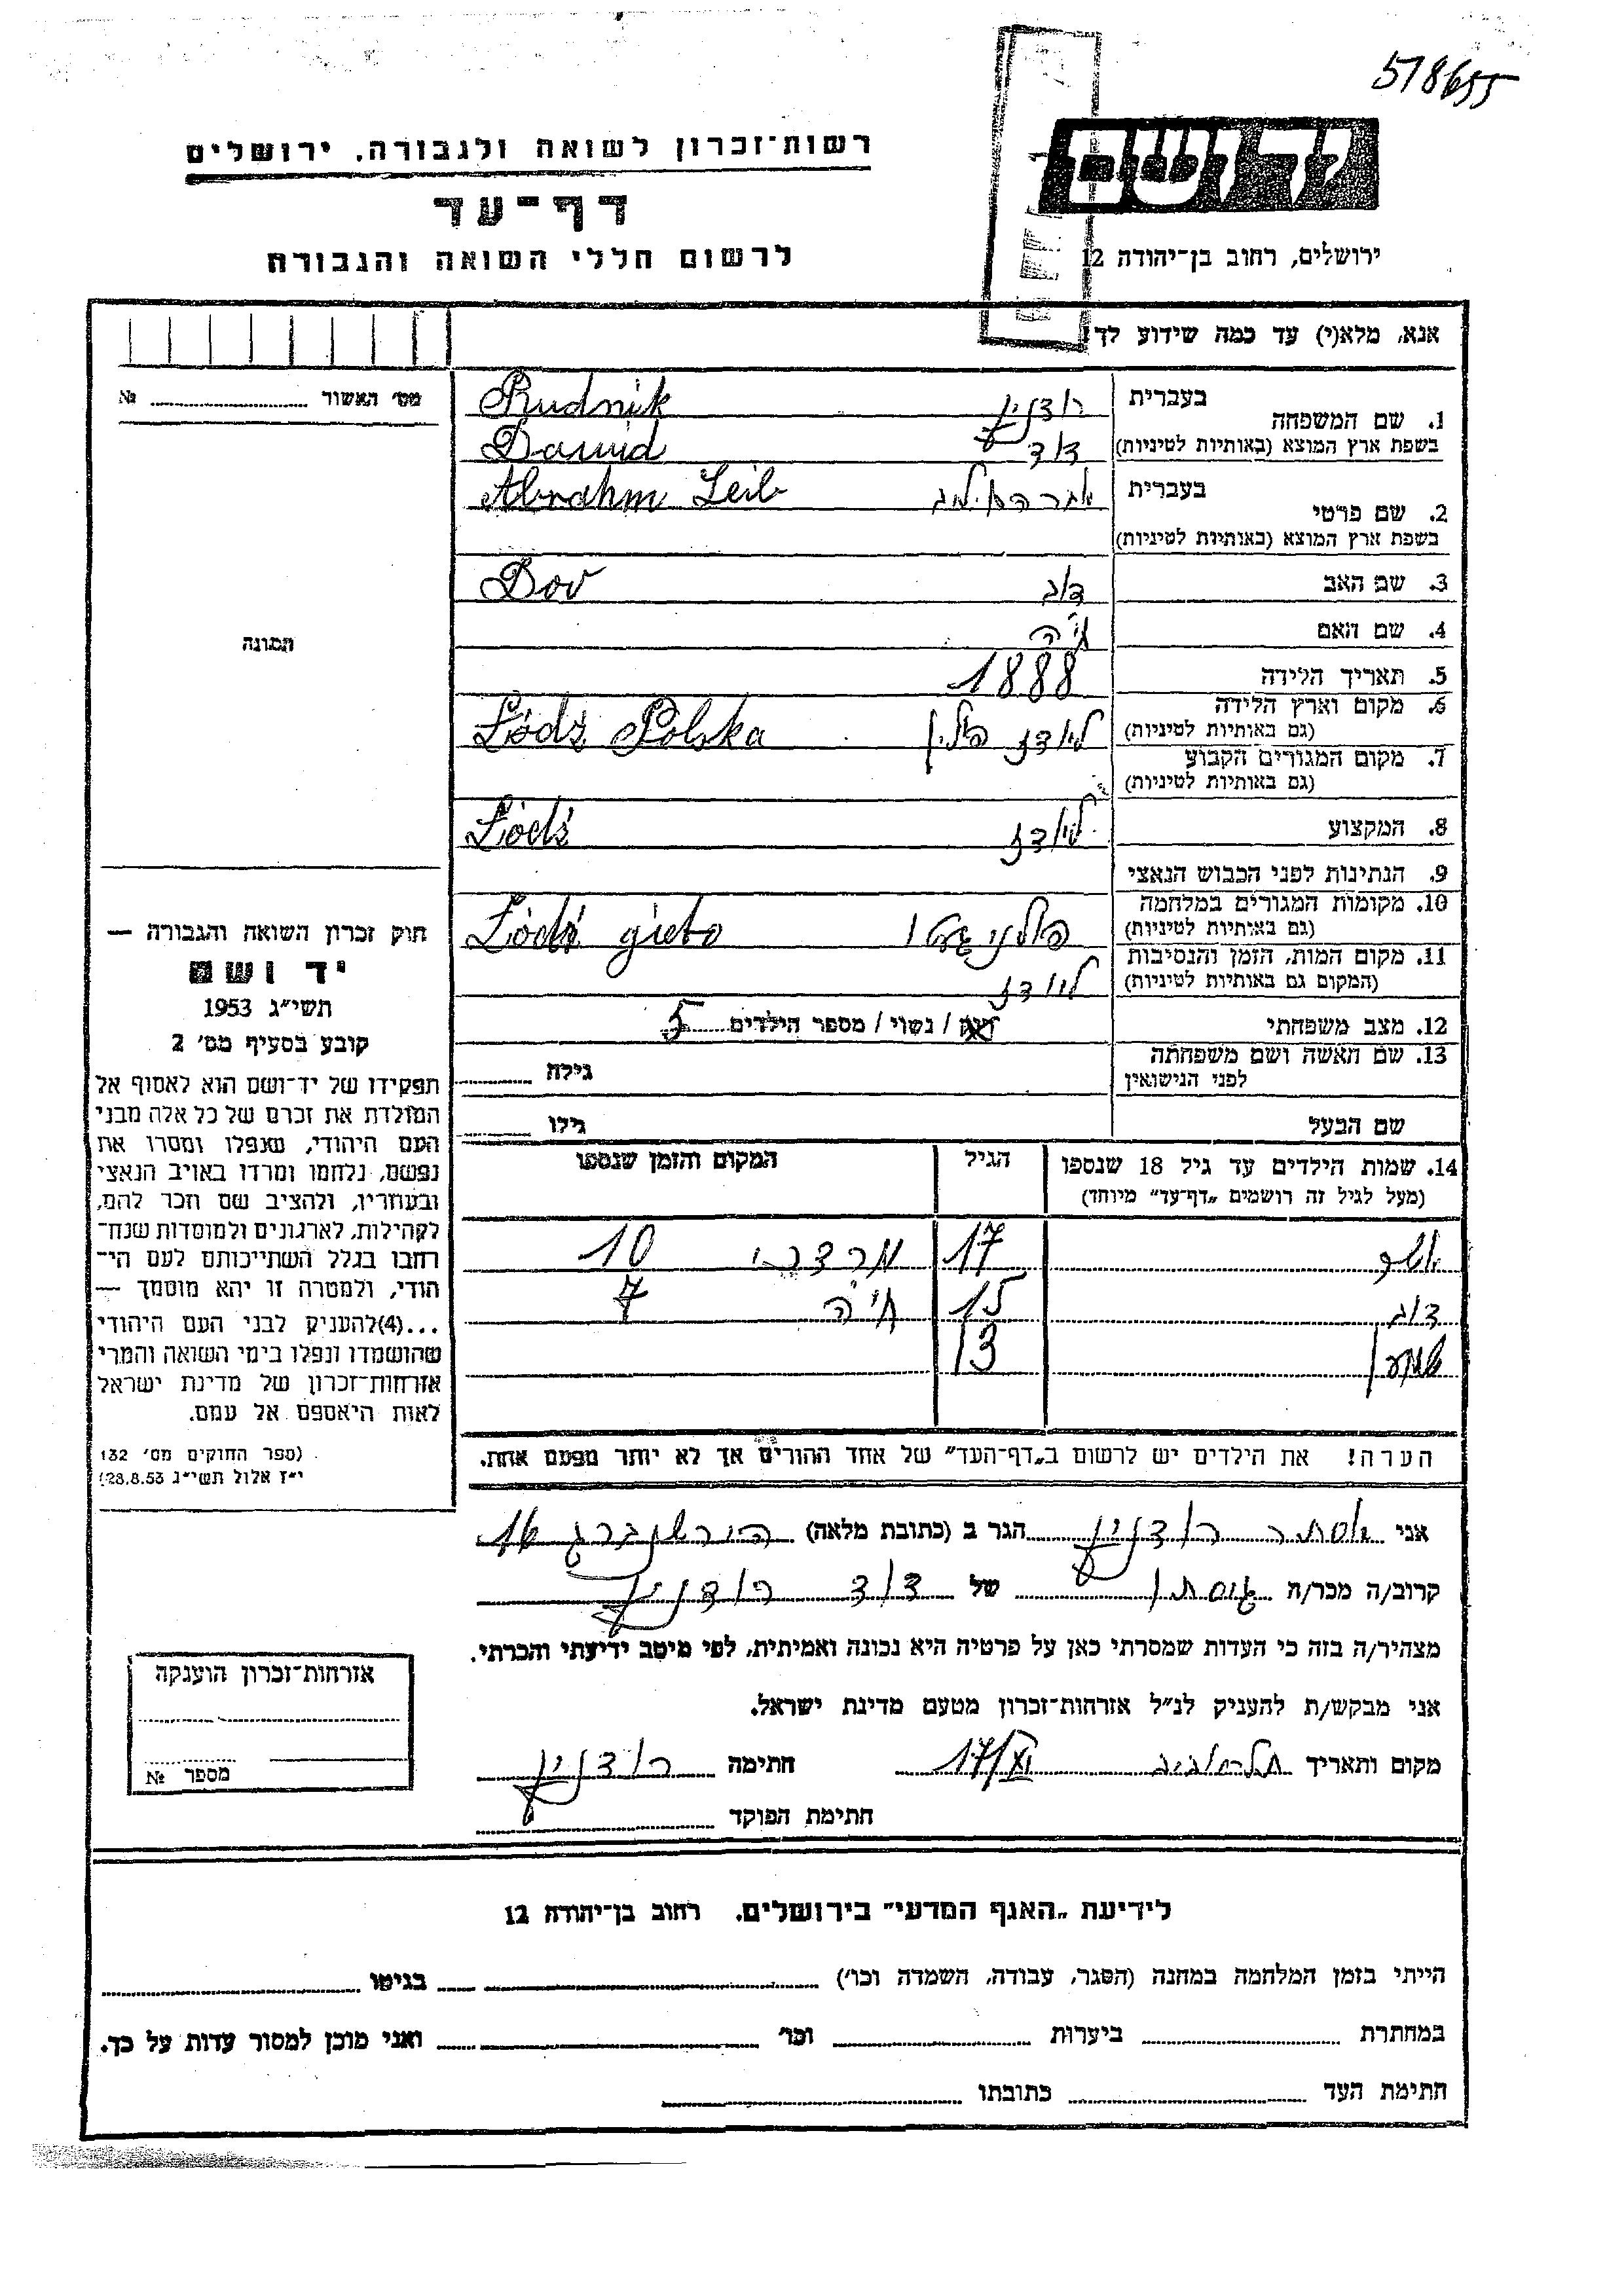 518655
רשות־זכרון לשואה ולגבורה. ירושלים
דף־עד
לרשום חללי השואה והגבורה
ידושם
ירושלים, רחוב בן־יהודה 12
אנא, מלא(י) עד כמה שידוע לך!
מס׳ האשור № 
1. שם המשפחה
בעברית רודניק Rudnik
בשפת ארץ המוצא (באותיות לטיניות) דוד Dawid
2. שם פרטי
בעברית Abrahm Leib
בשפת ארץ המוצא (באותיות לטיניות)
3. שם האב דוב Dov
4. שם האם חיה
5. תאריך הלידה 1888
6. מקום וארץ הלידה
(גם באותיות לטיניות) לודז פולין Łódź Polska
7. מקום המגורים הקבוע
(גם באותיות לטיניות)
8. המקצוע לודז Łódź
9. הנתינות לפני הכבוש הנאצי
10. מקומות המגורים במלחמה
(גם באותיות לטיניות) Łódź gieto
11. מקום המות, הזמן והנסיבות
(המקום גם באותיות לטיניות) לודז
12. מצב משפחתי רווק / נשוי / מספר הילדים 5
13. שם האשה ושם משפחתה
לפני הנישואין גילה
שם הבעל גילו
14. שמות הילדים עד גיל 18 שנספו הגיל המקום והזמן שנספו
(מעל לגיל זה רושמים „דף־עד״ מיוחד)
17 מרדכי 10
דוב 15 חיה 7
שמעון 13
הערה! את הילדים יש לרשום ב„דף־העד״ של אחד ההורים אך לא יותר מפעם אחת.
תמונה
חוק זכרון השואה והגבורה —
יד ושם
תשי״ג 1953
קובע בסעיף מס׳ 2
תפקידו של יד־ושם הוא לאסוף אל
המולדת את זכרם של כל אלה מבני
העם היהודי, שנפלו ומסרו את
נפשם, נלחמו ומרדו באויב הנאצי
ובעוזריו, ולהציב שם וזכר להם,
לקהילות, לארגונים ולמוסדות שנח־
רחבו בגלל השתייכותם לעם הי־
הודי, ולמטרה זו יהא מוסמך —
...(4) להעניק לבני העם היהודי
שהושמדו ונפלו בימי השואה והמרי
אזרחות־זכרון של מדינת ישראל
לאות היאספם אל עמם.
(ספר החוקים מס׳ 132
י״ז אלול תשי״ג 28.8.53)
אני אסתר רודניק הגר ב (כתובת מלאה) הירשנברג 16
קרוב/ה מכר/ה של דוד רודניק
מצהיר/ה בזה כי העדות שמסרתי כאן על פרטיה היא נכונה ואמיתית, לפי מיטב ידיעתי והכרתי.
אני מבקש/ת להעניק לנ״ל אזרחות־זכרון מטעם מדינת ישראל.
מקום ותאריך תל אביב 17/XI חתימה רודניק
חתימת הפוקד
אזרחות־זכרון הוענקה
מספר №
לידיעת „האגף המדעי״ בירושלים. רחוב בן־יהודה 12
הייתי בזמן המלחמה במחנה (הסגר, עבודה, השמדה וכו׳) בגיטו
במחתרת ביערות וכו׳ ואני מוכן למסור עדות על כך.
חתימת העד כתובתו